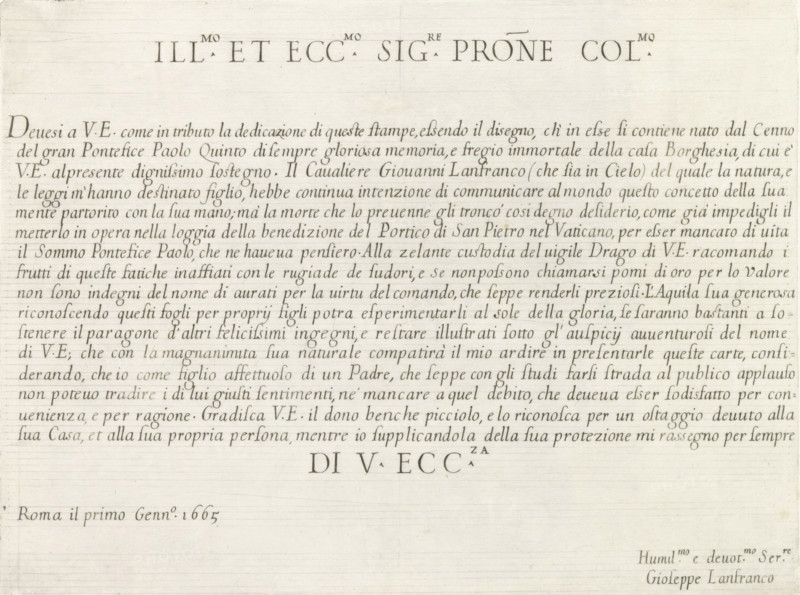 ILL.MO ET ECC.MO SIG.RE PRŌNE COL.MO
Deuesi a V·E· come in tributo la dedicazione di queste stampe, essendo il disegno, ch'in esse si contiene nato dal Cenno
del gran Pontefice Paolo Quinto di sempre gloriosa memoria, e fregio immortale della casa Borghesia, di cui e'
V·E· alpresente dignissimo sostegno· Il Caualiere Giouanni Lanfranco (che sia in Cielo) del quale la natura, e
le leggi m'hanno destinato figlio, hebbe continua intenzione di communicare al mondo questo concetto della sua
mente partorito con la sua mano; ma' la morte che lo preuenne gli tronco' cosi degno desiderio, come gia' impedigli il
metterlo in opera nella loggia della benedizione del Portico di San Pietro nel Vaticano, per esser mancato di uita
il Sommo Pontefice Paolo, che ne haueua pensiero· Alla zelante custodia del uigile Drago di V·E· racomando i
frutti di queste fatiche inaffiati con le rugiade de sudori, e se nonpossono chiamarsi pomi di oro per lo Valore
non sono indegni del nome di aurati per la uirtu del comando, che seppe renderli preziosi· L'Aquila sua generosa
riconoscendo questi fogli per proprij figli potra esperimentarli al sole della gloria, se saranno bastanti a so=
stenere il paragone d'altri felicissimi ingegni, e restare illustrati sotto gl'auspicij auuenturosi del nome
di V·E; che con la magnanimita sua naturale compatira' il mio ardire in presentarle queste carte, consi=
derando, che io come figlio affettuoso di un Padre, che seppe con gli studi farsi strada al publico applauso
non poteuo tradire i di lui giusti sentimenti, ne' mancare a quel debito, che deueua esser sodisfatto per con=
uenienza, e per ragione· Gradisca V·E· il dono benche picciolo, e lo riconosca per un ostaggio deuuto alla
sua Casa, et alla sua propria persona, mentre io supplicandola della sua protezione mi rassegno per sempre
DI V· ECC.ZA
Roma il primo Genn.o 1665
Humil.mo e deuot.mo Ser.re
Gioseppe Lanfranco